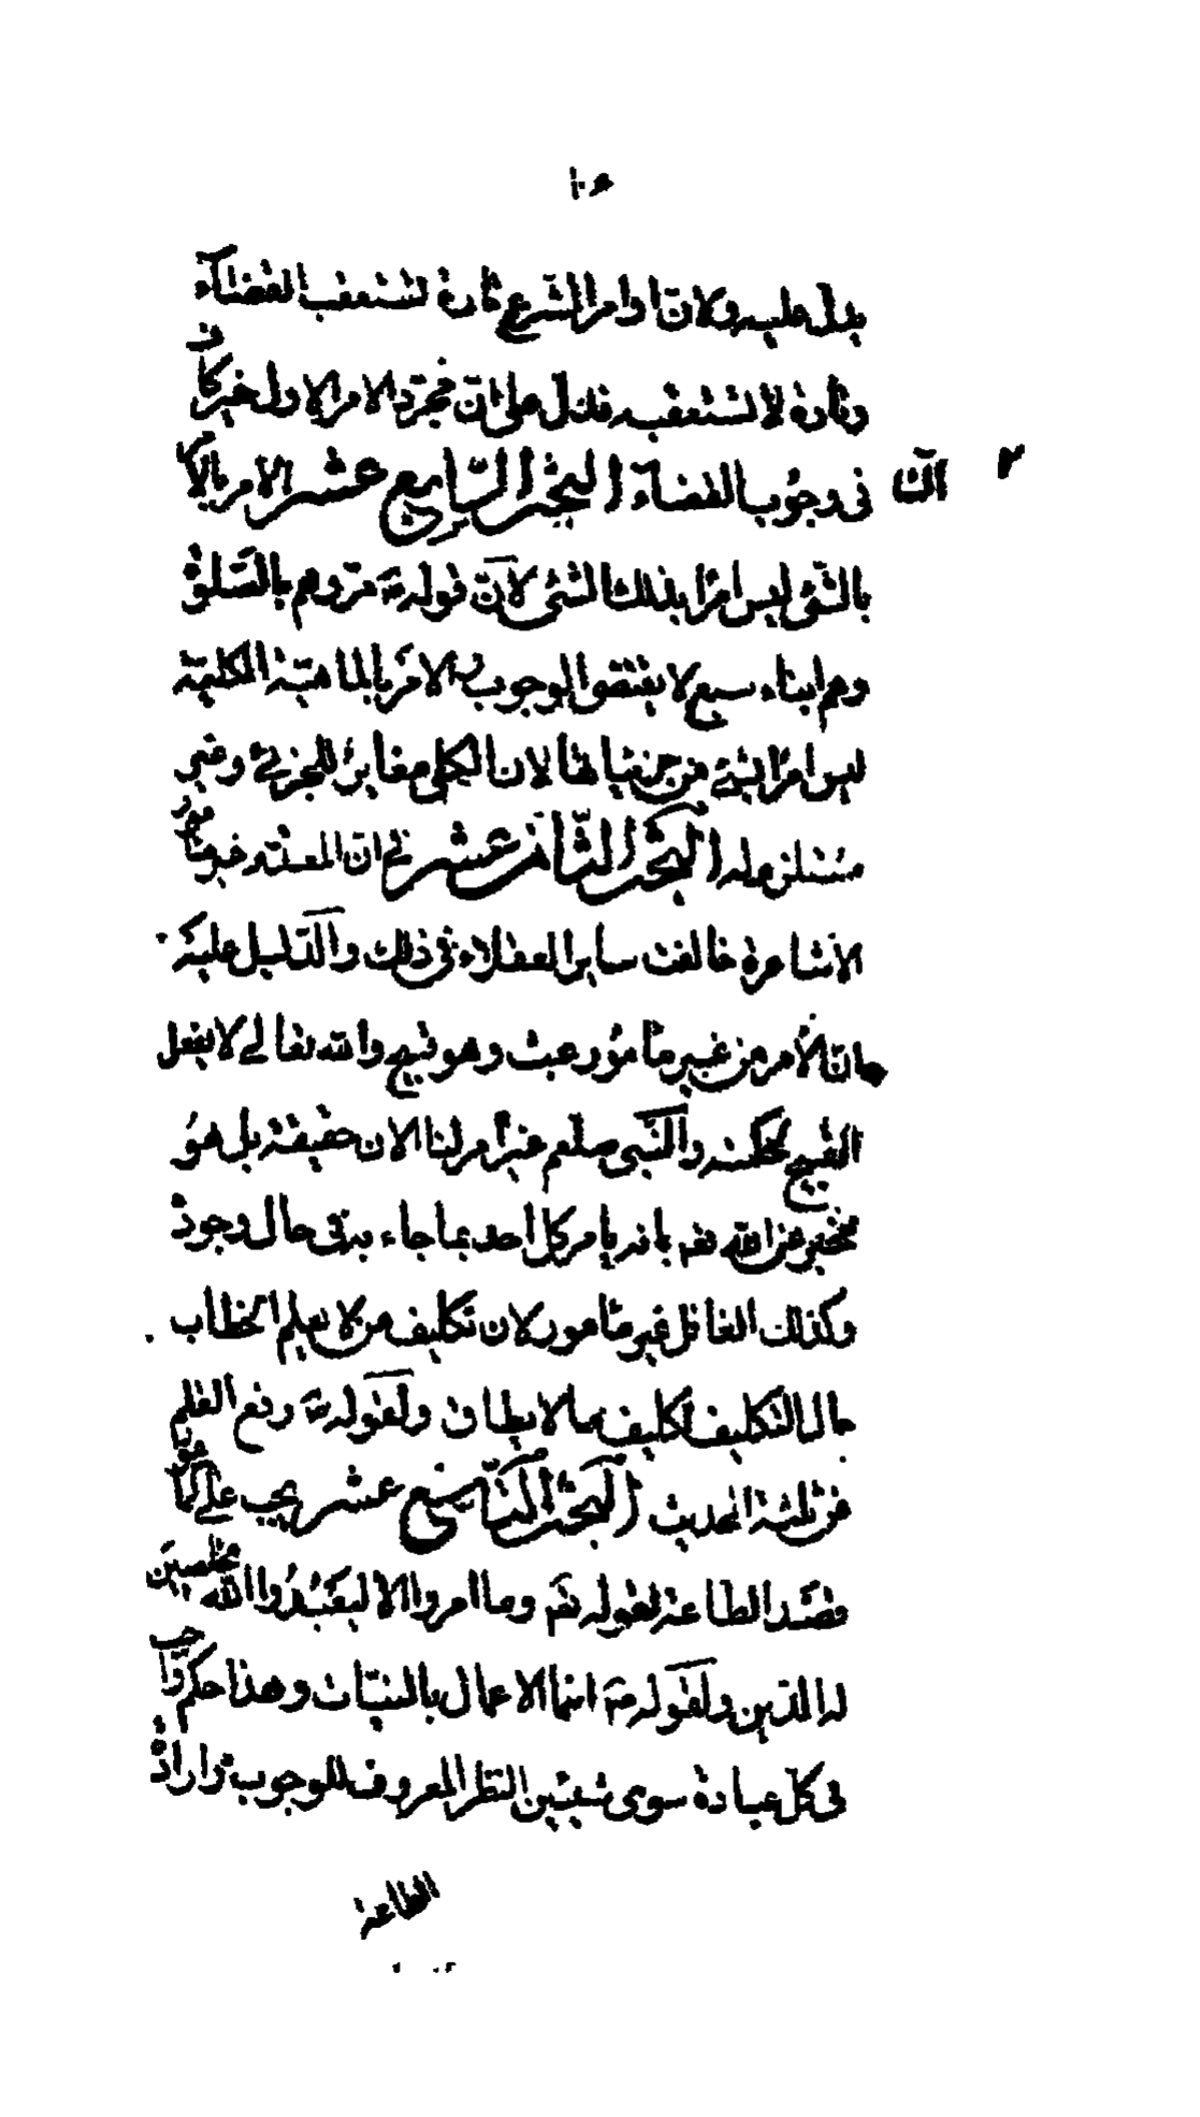 ١٠٥
يدل عليه ولان اوامر الشرع تارة تستعقب القضاء
وتارة لا تستعقبه فلدل على ان مجرد الامر الاول غير كاف
فى وجوب القضاء البحث السابع عشر الامر بالامر
بالشئ ليس امرا بذلك الشئ لان قوله ص مروهم بالصلوة
وهم ابناء سبع لا يقتضى الوجوب والامر بالماهية الكلية
ليس امرا بشئ من جزئياتها لان الكلى مغاير للجزئى وغير
مستلزم له البحث الثامن عشر فى ان المعدوم غير مأمور
الاشاعرة خالفت ساير العقلاء فى ذلك والدليل عليه
ان الامر من غير مأمور عبث وهو قبيح والله تعالى لا يفعل
القبيح لحكمته والنبى صلعم غير امر لنا الان حقيقة بل هو
مخبر عن الله تعه بانه يامر كل احد بما جاء به فى حال وجوده
وكذلك الغافل غير مأمور لان تكليف من لا يعلم الخطاب
حال التكليف تكليف بما لا يطاق ولقوله ص رفع القلم
عن ثلثة الحديث البحث التاسع عشر يجب على المأمور
قصد الطاعة لقوله تعه وما امروا الا ليعبدوا الله مخلصين
له الدين ولقوله ص انما الاعمال بالنيات وهذا حكم واجب
فى كل عبادة سوى شيئين النظر المعروف للوجوب وارادة
الطاعة